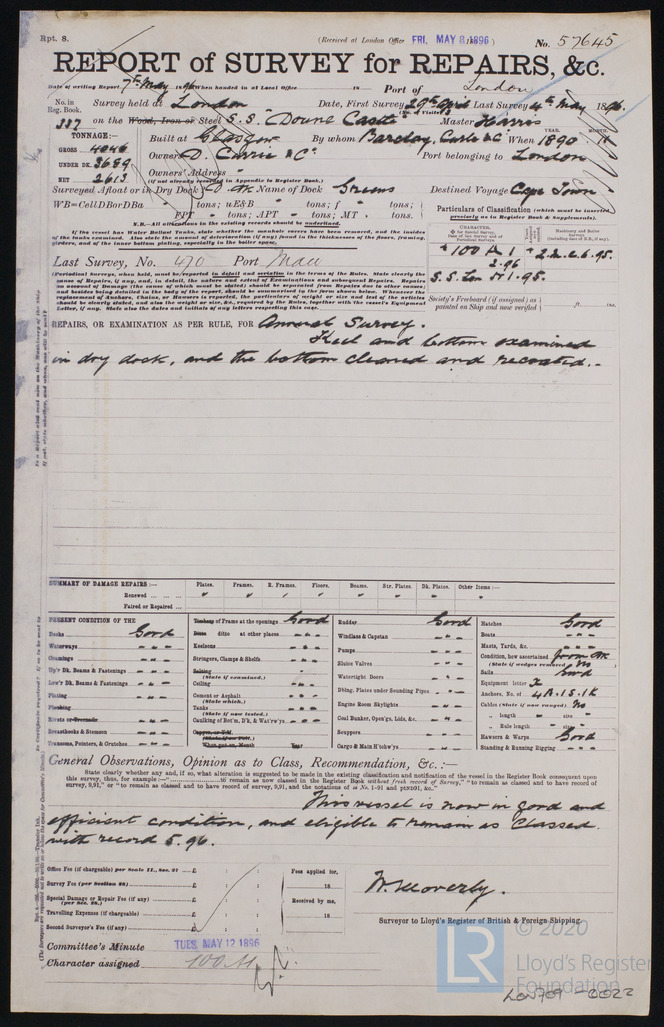 Rpt. 8.
(Received at London Office FRI. MAY 8 1896)
No. 57645
REPORT of SURVEY for REPAIRS, &c.
Date of writing Report 7th May 1896 When handed in at Local Office 18 Port of London
No. in Reg. Book. 337
Survey held at London Date, First Survey 29th April Last Survey 4th May 1896.
on the Wood, Iron or Steel S.S. "Doune Castle" Master Harris
TONNAGE:—
GROSS 4046
UNDER DK. 3689
NET 2613
Built at Glasgow By whom Barclay, Curle & Co When 1890
YEAR. MONTH.
Owners D. Currie & Co Port belonging to London
Owners' Address
(if not already recorded in Appendix to Register Book.)
Surveyed Afloat or in Dry Dock Name of Dock Greens Destined Voyage Cape Town
WB=CellDBorDBa tons; uE&B tons; f tons;
FPT tons; APT tons; MT tons.
N.B.—All alterations in the existing records should be underlined.
If the vessel has Water Ballast Tanks, state whether the manhole covers have been removed, and the insides of the tanks examined. Also state the amount of deterioration (if any) found in the thicknesses of the floors, framing, girders, and of the inner bottom plating, especially in the boiler space.
Particulars of Classification (which must be inserted precisely as in Register Book & Supplements).
CHARACTER.
Machinery and Boiler Surveys (including date of N.B., if any).
100 A 1
2.96
S.S. Lon No 1.95.
2.95
Society's Freeboard (if assigned) as painted on Ship and now verified ft. ins.
Last Survey, No. 470 Port
(Periodical Surveys, when held, must be reported in detail and seriatim in the terms of the Rules. State clearly the cause of Repairs, if any, and, in detail, the nature and extent of Examinations and subsequent Repairs. Repairs on account of Damage (the cause of which must be stated) should be separated from Repairs due to other causes, and besides being detailed in the body of the report, should be summarised in the form shown below. Whenever the replacement of Anchors, Chains, or Hawsers is reported, the particulars of weight or size and test of the articles should be clearly stated, and also weight or size, &c., required by the Rules, together with the vessel's Equipment Letter, if any. State also the dates and initials of any letters respecting this case.
REPAIRS, OR EXAMINATION AS PER RULE, FOR Annual Survey.
Keel and bottom examined
in dry dock, and the bottom cleaned and recoated.-
SUMMARY OF DAMAGE REPAIRS:— Plates. Frames. R. Frames. Floors. Beams. Str. Plates. Dk. Plates. Other Items:—
Renewed
Faired or Repaired
PRESENT CONDITION OF THE
Decks Good
Waterways
Coamings
Up'r Dk. Beams & Fastenings
Low'r Dk. Beams & Fastenings
Plating
Planking
Rivets or Treenails
Breasthooks & Stemson
Transoms, Pointers, & Crutches
Timbers of Frame at the openings Good
Ditto ditto at other places
Keelsons
Stringers, Clamps & Shelfs
Salting
(State if examined.)
Ceiling
Cement or Asphalt
(State which.)
Tanks
(State if now tested.)
Caulking of Bot'm, D'k, & Wat'rw'ys
When put on, Month Year
Rudder Good
Windlass & Capstan
Pumps
Sluice Valves
Watertight Doors
Dblng. Plates under Sounding Pipes
Engine Room Skylights
Coal Bunker, Open'gs, Lids, &c.
Scuppers
Cargo & Main H'tchw'ys
Hatches Good
Boats
Masts, Yards, &c.
Condition, how ascertained from Dk
(State if wedges removed) No
Sails Good
Equipment letter
Anchors, No. of 4B.1S.1K
Cables (State if now ranged) No
" length " size
" Rule length " size
Hawsers & Warps Good
Standing & Running Rigging
General Observations, Opinion as to Class, Recommendation, &c.:—
State clearly whether any, and if so, what alteration is suggested to be made in the existing classification and notification of the vessel in the Register Book consequent upon
this survey, thus, for example:—"to remain as now classed in the Register Book without fresh record of Survey," "to remain as classed and to have record of
survey, 9,91," or "to remain as classed and to have record of survey, 9,91, and the notations of ss No. 1-91 and ptND91, &c."
This vessel is now in good and
efficient condition, and eligible to remain as Classed
with record 5.96.
Office Fee (if chargeable) per Scale II., Sec. 27 £
Survey Fee (per Section 28) £
Special Damage or Repair Fee (if any) (per Sec. 28.) £
Travelling Expenses (if chargeable) £
Second Surveyor's Fee (if any) £
Fees applied for, 18
Received by me, 18
Surveyor to Lloyd's Register of British & Foreign Shipping.
Committee's Minute TUES. MAY 12 1896
Character assigned 100A1
LR
© 2020
Lloyd's Register
Foundation
LON709-0022